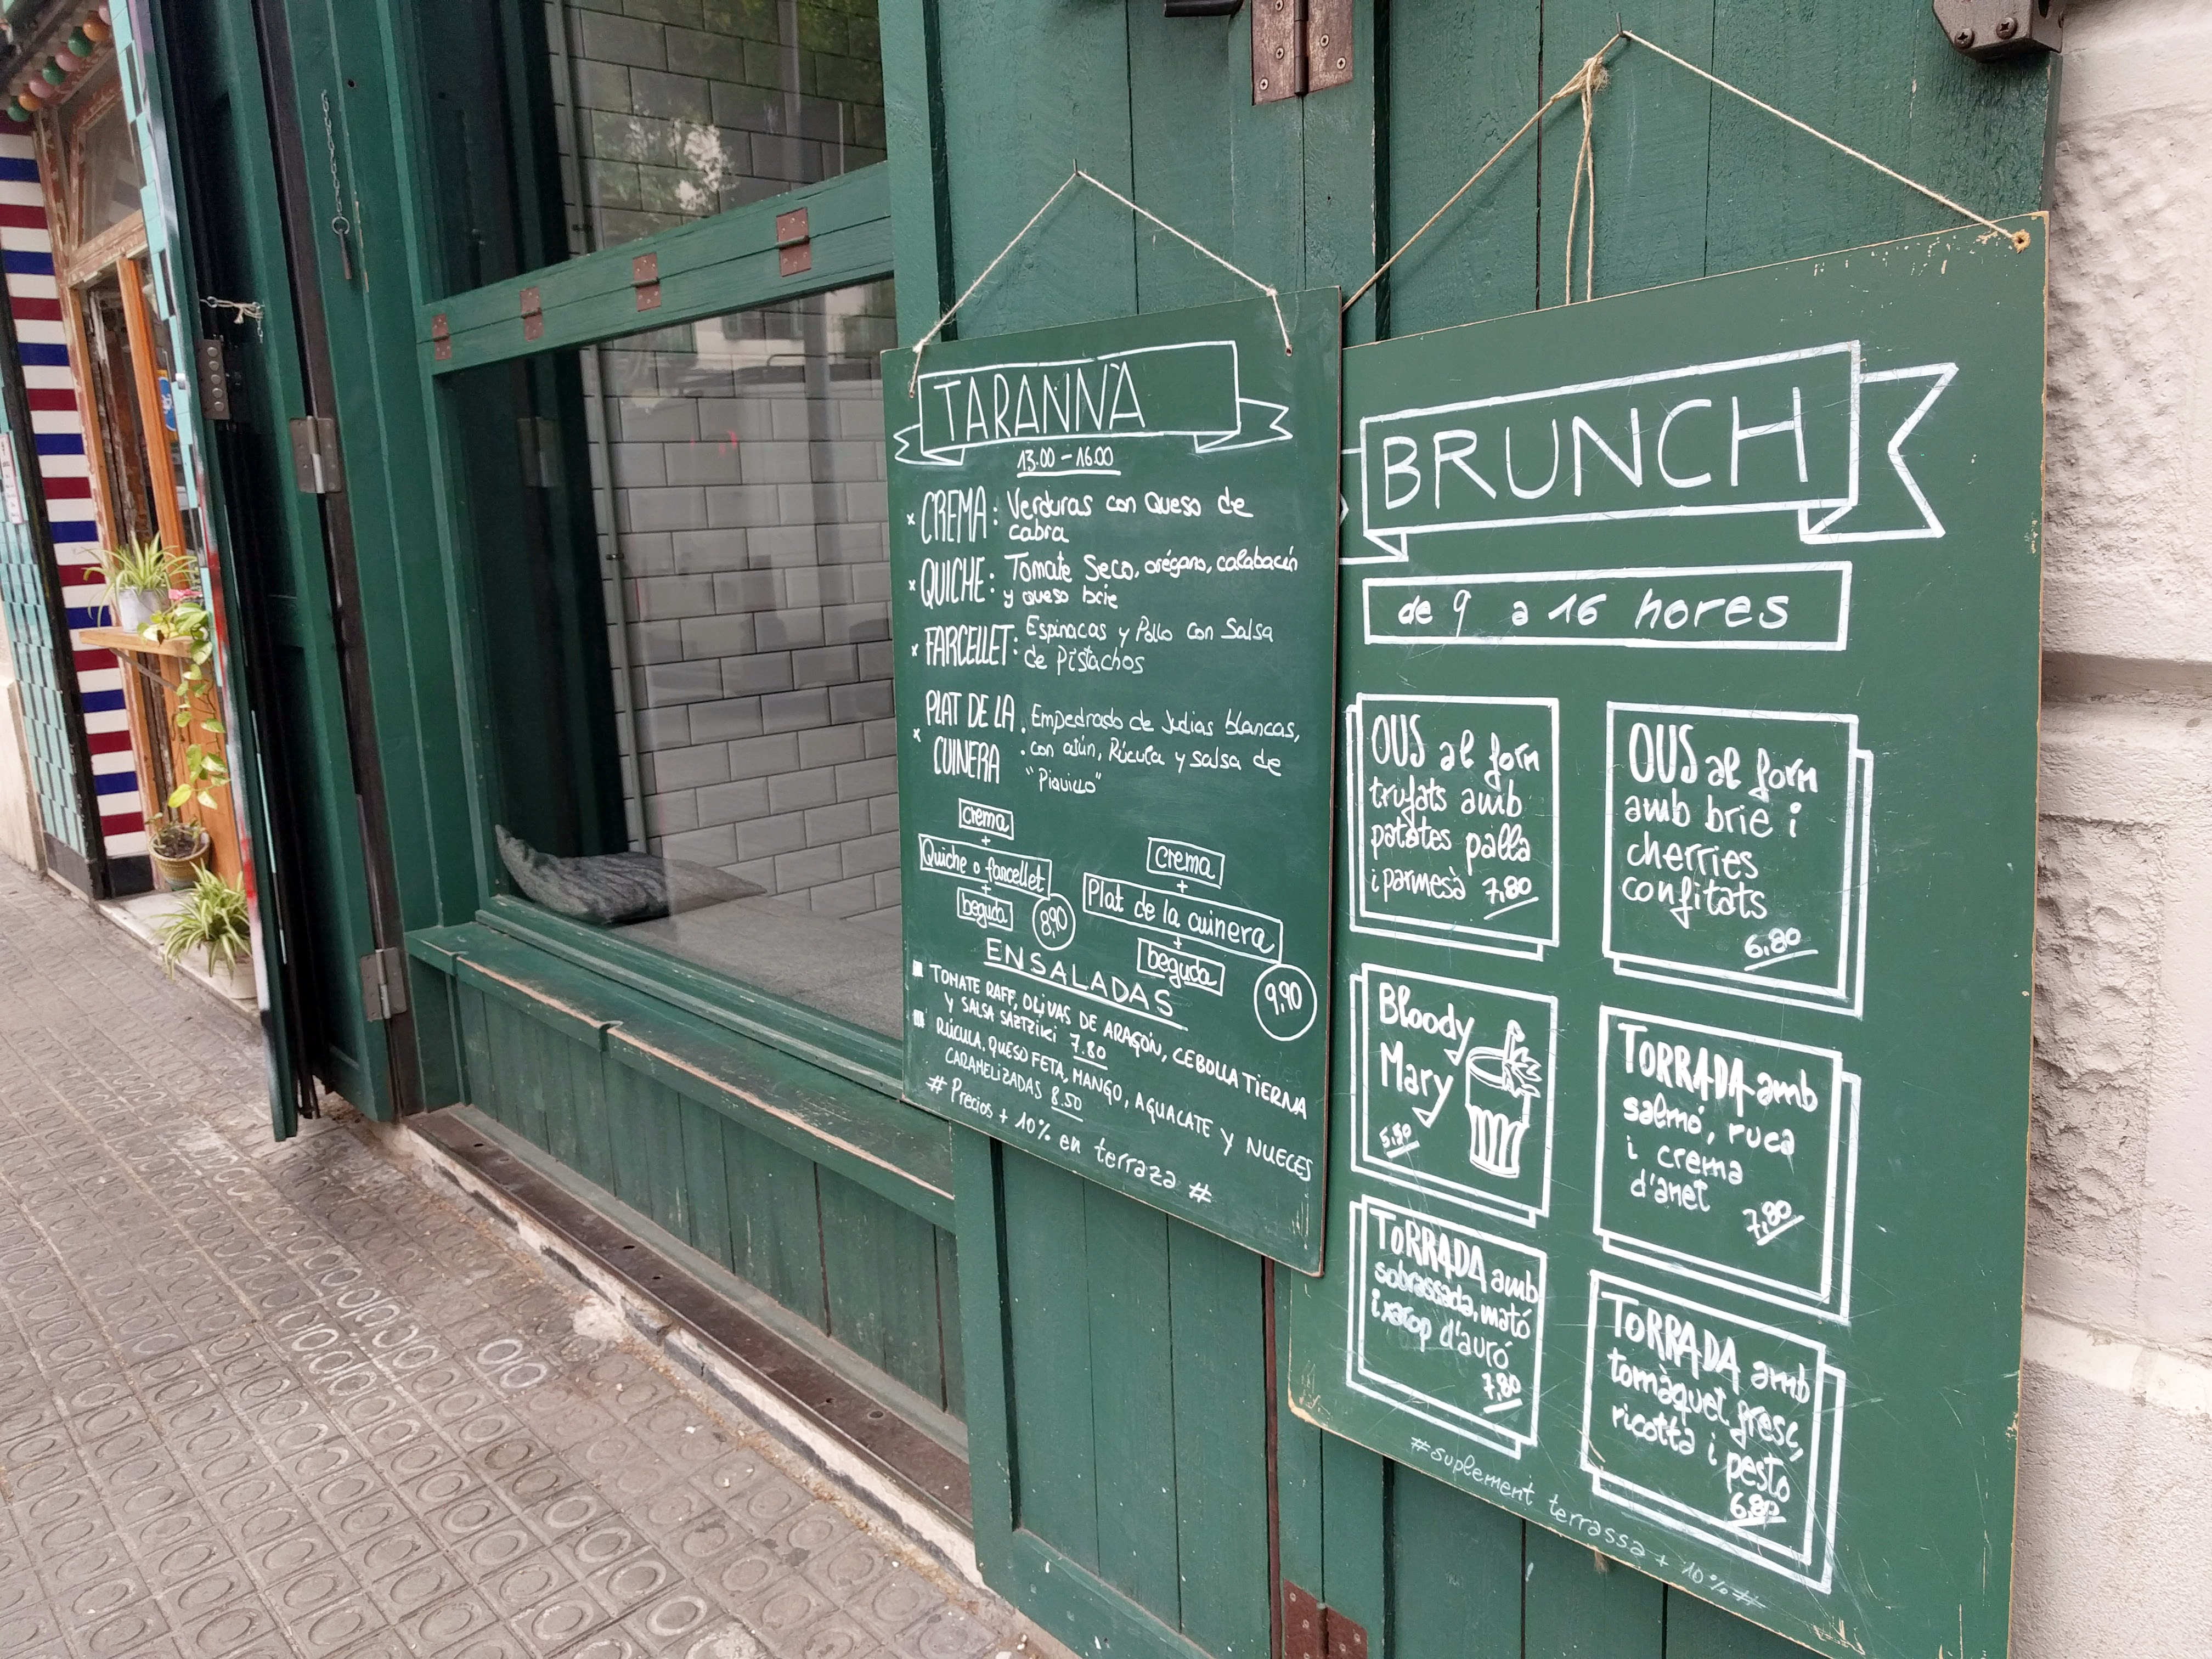 TARANNÀ
13.00 - 16.00
x CREMA: Verduras con Queso de
cabra
x QUICHE: Tomate Seco, orégano, calabacín
y queso brie
x FARCELLET: Espinacas y Pollo con Salsa
de Pistachos
x PLAT DE LA CUINERA: Empedrado de Judias blancas,
con atún, Rúcula y salsa de
"Piquillo"
crema
+
Quiche o farcellet
+
beguda
8,90
crema
+
Plat de la cuinera
+
beguda
9,90
ENSALADAS
TOMATE RAFF, OLIVAS DE ARAGÓN, CEBOLLA TIERNA
Y SALSA SAZTZIKI 7.80
RÚCULA, QUESO FETA, MANGO, AGUACATE Y NUECES
CARAMELIZADAS 8.50
# Precios + 10% en terraza #
BRUNCH
de 9 a 16 hores
OUS al forn
trufats amb
patates palla
i parmesà 7,80
OUS al forn
amb brie i
cherries
confitats
6,80
Bloody
Mary
5,50
TORRADA amb
salmó, ruca
i crema
d'anet
7,80
TORRADA amb
sobrassada, mató
i xarop d'auró
7,80
TORRADA amb
tomàquet fresc,
ricotta i pesto
6,80
#suplement terrassa + 10%#